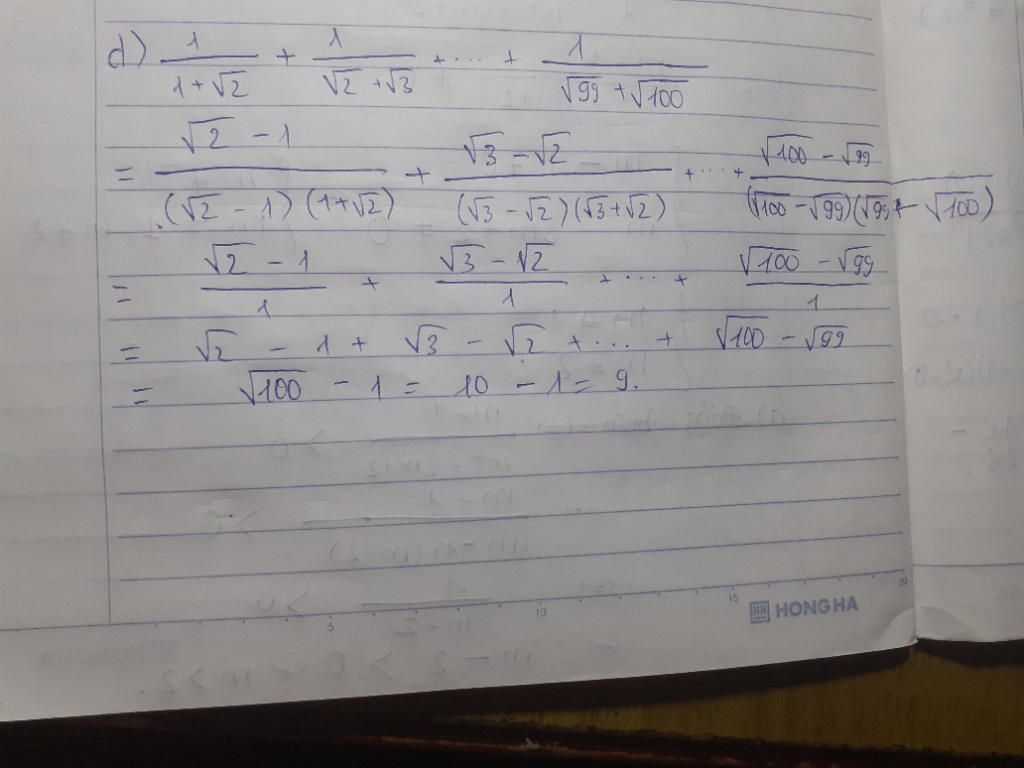 d) \frac{1}{1+\sqrt{2}} + \frac{1}{\sqrt{2}+\sqrt{3}} + ... + \frac{1}{\sqrt{99}+\sqrt{100}}
= \frac{\sqrt{2}-1}{(\sqrt{2}-1)(1+\sqrt{2})} + \frac{\sqrt{3}-\sqrt{2}}{(\sqrt{3}-\sqrt{2})(\sqrt{3}+\sqrt{2})} + ... + \frac{\sqrt{100}-\sqrt{99}}{(\sqrt{100}-\sqrt{99})(\sqrt{99}+\sqrt{100})}
= \frac{\sqrt{2}-1}{1} + \frac{\sqrt{3}-\sqrt{2}}{1} + ... + \frac{\sqrt{100}-\sqrt{99}}{1}
= \sqrt{2} - 1 + \sqrt{3} - \sqrt{2} + ... + \sqrt{100} - \sqrt{99}
= \sqrt{100} - 1 = 10 - 1 = 9.
5 10 15 20
HONG HA